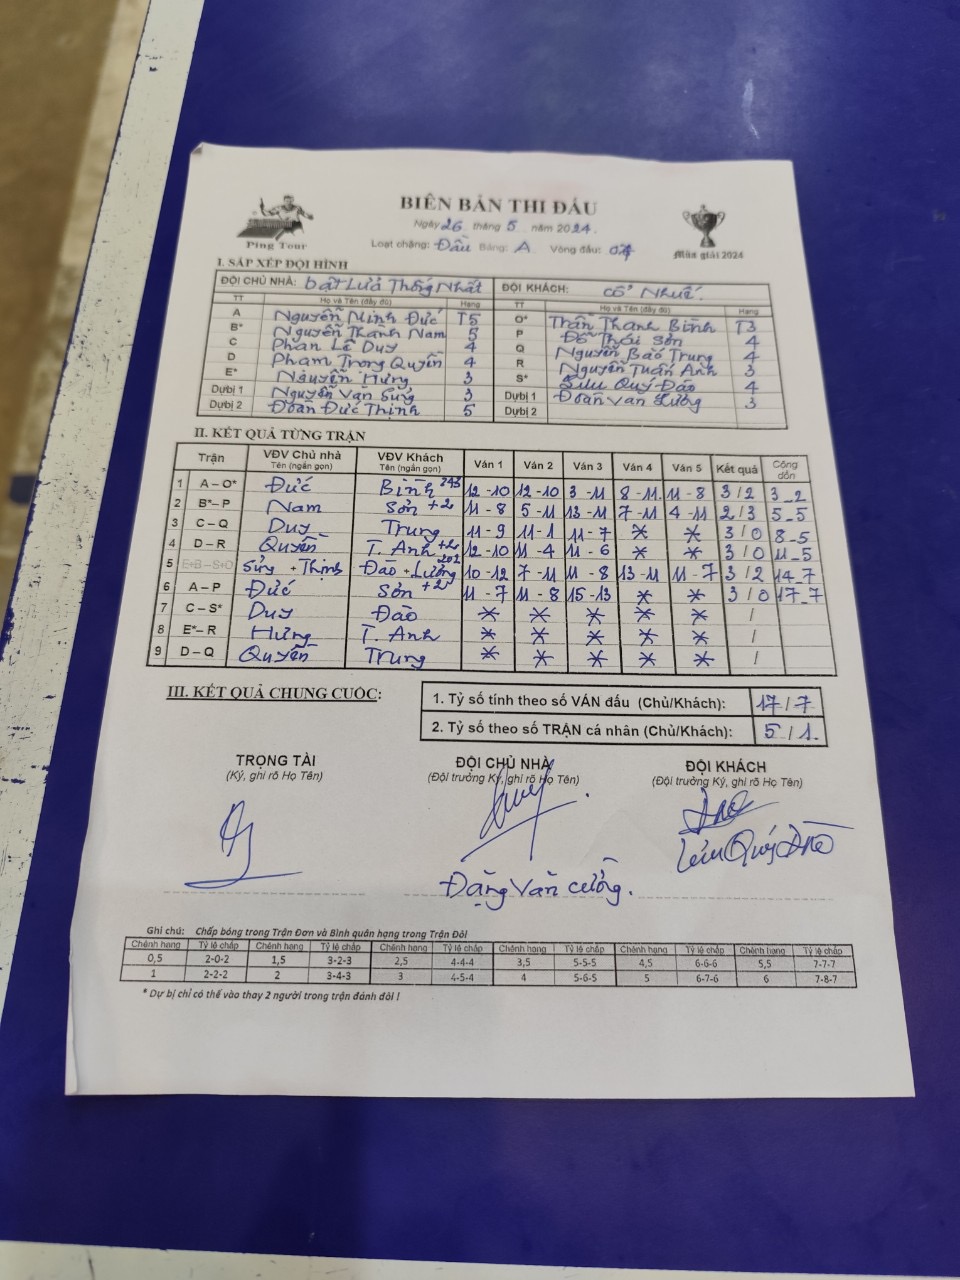 BIÊN BẢN THI ĐẤU
Ping Tour
Ngày 26 tháng 5 năm 2024.
Mùa giải 2024
Loạt chặng: Đầu Bảng: A. Vòng đấu: 04
I. SẮP XẾP ĐỘI HÌNH
ĐỘI CHỦ NHÀ: bật Lửa Thống Nhất ĐỘI KHÁCH: Cổ Nhuế.
TT Họ và Tên (đầy đủ) Hạng TT Họ và Tên (đầy đủ) Hạng
A Nguyễn Minh Đức T5 O* Trần Thanh Bình T3
B* Nguyễn Thành Nam 5 P Đỗ Thái Sơn 4
C Phan Lê Duy 4 Q Nguyễn Bảo Trung 4
D Phạm Trọng Quyền 4 R Nguyễn Tuấn Anh 3
E* Nguyễn Hưng 3 S* Lưu Quý Đào 4
Dự bị 1 Nguyễn Văn Sửng 3 Dự bị 1 Đoàn Văn Lưỡng 3
Dự bị 2 Đoàn Đức Thịnh 5 Dự bị 2
II. KẾT QUẢ TỪNG TRẬN
Trận VĐV Chủ nhà Tên (ngắn gọn) VĐV Khách Tên (ngắn gọn) Ván 1 Ván 2 Ván 3 Ván 4 Ván 5 Kết quả Cộng dồn
1 A – O* Đức Bình 343 12-10 12-10 3-11 8-11 11-8 3/2 3_2
2 B*– P Nam Sơn +2 11-8 5-11 13-11 7-11 4-11 2/3 5_5
3 C – Q Duy Trung 11-9 11-1 11-7 * * 3/0 8-5
4 D – R Quyền T. Anh +2 12-10 11-4 11-6 * * 3/0 11-5
5 E+B – S+O Sửng + Thịnh Đào + Lưỡng 202 10-12 7-11 11-8 13-11 11-7 3/2 14_7
6 A – P Đức Sơn +2 11-7 11-8 15-13 * * 3/0 17_7
7 C – S* Duy Đào * * * * * /
8 E*– R Hưng T. Anh * * * * * /
9 D – Q Quyền Trung * * * * * /
III. KẾT QUẢ CHUNG CUỘC:
1. Tỷ số tính theo số VÁN đấu (Chủ/Khách): 17/7
2. Tỷ số theo số TRẬN cá nhân (Chủ/Khách): 5/1
TRỌNG TÀI ĐỘI CHỦ NHÀ ĐỘI KHÁCH
(Ký, ghi rõ Họ Tên) (Đội trưởng Ký, ghi rõ Họ Tên) (Đội trưởng Ký, ghi rõ Họ Tên)
Lưu Quý Đào
Đặng Văn Cường.
Ghi chú: Chấp bóng trong Trận Đơn và Bình quân hạng trong Trận Đôi
Chênh hạng Tỷ lệ chấp Chênh hạng Tỷ lệ chấp Chênh hạng Tỷ lệ chấp Chênh hạng Tỷ lệ chấp Chênh hạng Tỷ lệ chấp Chênh hạng Tỷ lệ chấp
0,5 2-0-2 1,5 3-2-3 2,5 4-4-4 3,5 5-5-5 4,5 6-6-6 5,5 7-7-7
1 2-2-2 2 3-4-3 3 4-5-4 4 5-6-5 5 6-7-6 6 7-8-7
* Dự bị chỉ có thể vào thay 2 người trong trận đánh đôi !